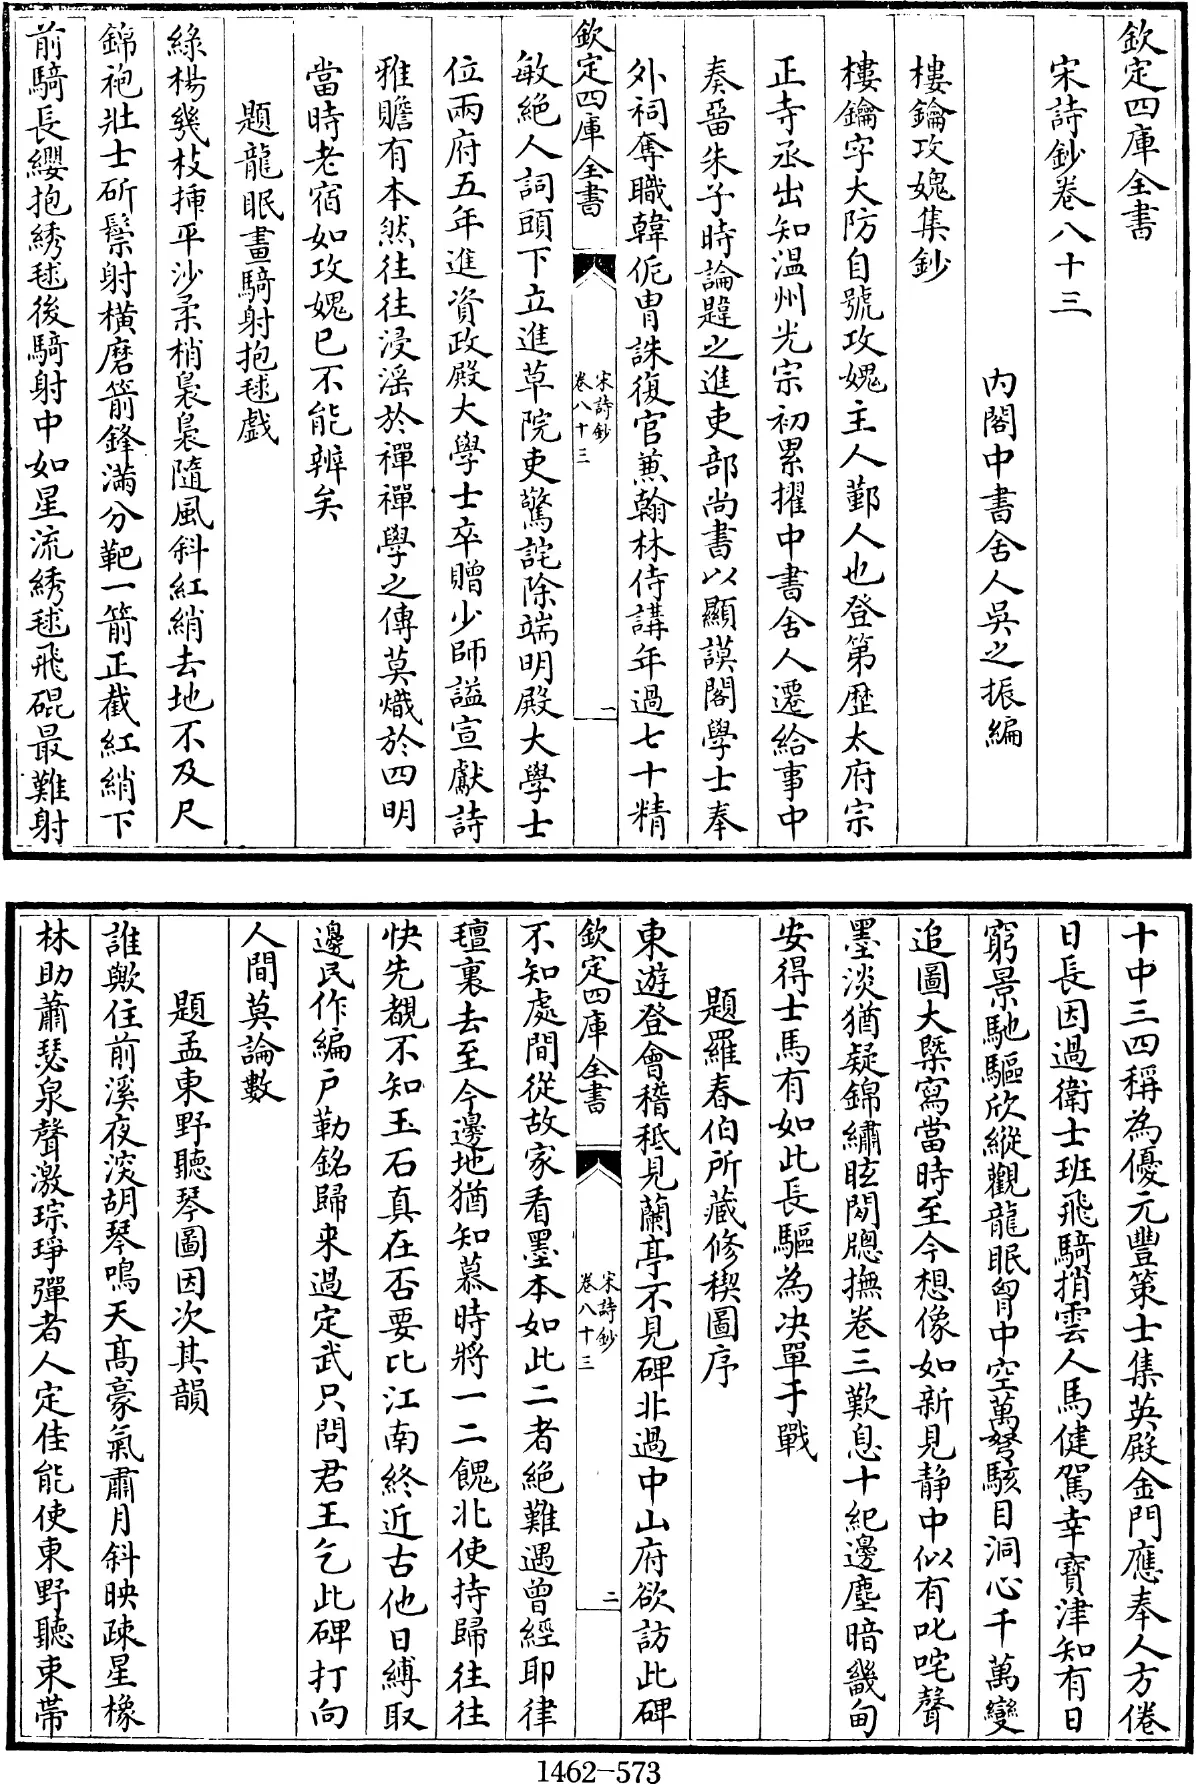 欽定四庫全書
宋詩鈔卷八十三
内閣中書舍人吳之振編
樓鑰攻媿集鈔
樓鑰字大防自號攻媿主人鄞人也登第歴太府宗
正寺丞出知温州光宗初累擢中書舍人遷給事中
奏畱朱子時論韙之進吏部尚書以顯謨閣學士奉
外祠奪職韓侂冑誅復官兼翰林侍講年過七十精
欽定四庫全書
宋詩鈔
卷八十三
一
敏絶人詞頭下立進草院吏驚詫除端明殿大學士
位兩府五年進資政殿大學士卒贈少師謚宣獻詩
雅贍有本然往往浸淫於禪禪學之傳莫熾於四明
當時老宿如攻媿已不能辨矣
題龍眠畫騎射抱毬戲
綠楊幾枝揷平沙柔梢裊裊隨風斜紅綃去地不及尺
錦袍壯士斫鬃射横磨箭鋒滿分靶一箭正截紅綃下
前騎長纓抱綉毬後騎射中如星流綉毬飛硠最難射
十中三四稱為優元豐策士集英殿金門應奉人方倦
日長因過衛士班飛騎捎雲人馬健駕幸寶津知有日
窮景馳驅欣縱觀龍眠胷中空萬馬駭目洞心千萬變
追圖大槩寫當時至今想像如新見静中似有叱咤聲
墨淡猶疑錦繡眩閑牕撫卷三歎息十紀邊塵暗畿甸
安得士馬有如此長驅為决單于戰
題羅春伯所藏修稧圖序
東遊登會稽秪見蘭亭不見碑北過中山府欲訪此碑
欽定四庫全書
宋詩鈔
卷八十三
二
不知處間從故家看墨本如此二者絶難遇曾經耶律
氊裏去至今邊地猶知慕時將一二餽北使持歸往往
快先覩不知玉石真在否要比江南終近古他日縛取
邊民作編户勒銘歸来過定武只問君王乞此碑打向
人間莫論數
題孟東野聽琴圖因次其韻
誰歟住前溪夜深胡琴鳴天髙豪氣肅月斜映疎星橡
林助蕭瑟泉聲激琮琤彈者人定佳能使東野聽束帶
1462-573